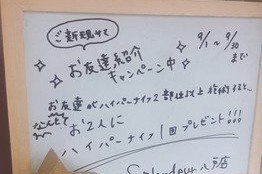 ご新規さま
お友達紹介
キャンペーン中
9/1〜9/30
まで
お友達がハイパーナイフ2部位以上施術すると…
なんと
お2人に
ハイパーナイフ1回プレゼント!!!
Splendeur八戸店